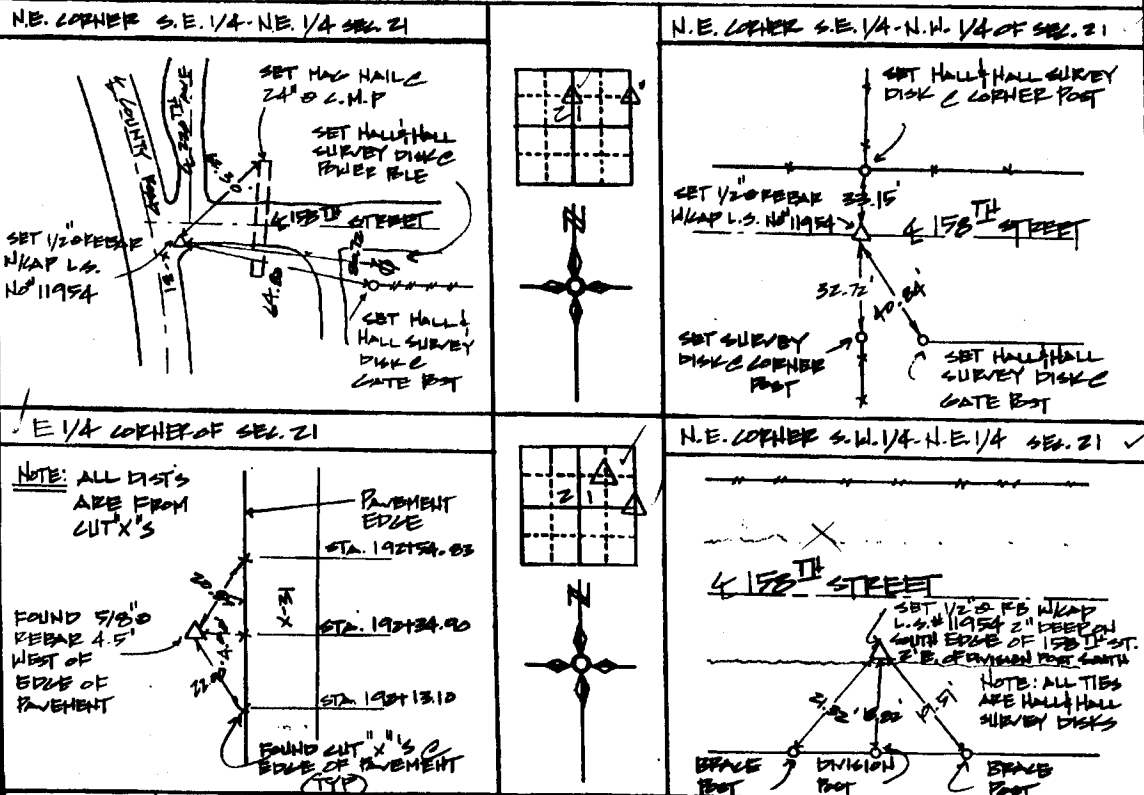 N.E. CORNER S.E. 1/4-N.E. 1/4 SEC. 21
℄ COUNTY ROAD
℄ 220TH AVE
SET MAG NAIL @
24"Ø C.M.P
SET HALL & HALL
SURVEY DISK @
POWER POLE
℄ 158TH STREET
SET 1/2"Ø REBAR
W/CAP L.S.
No# 11954
X-31
SET HALL &
HALL SURVEY
DISK @
GATE POST
2 1
N
N.E. CORNER S.E. 1/4-N.W. 1/4 OF SEC. 21
SET HALL & HALL SURVEY
DISK @ CORNER POST
SET 1/2"Ø REBAR
W/CAP L.S. No# 11954
33.15'
℄ 158TH STREET
32.72'
40.84'
SET SURVEY
DISK @ CORNER
POST
SET HALL & HALL
SURVEY DISK @
GATE POST
E 1/4 CORNER OF SEC. 21
NOTE: ALL DIST'S
ARE FROM
CUT "X"'S
PAVEMENT
EDGE
STA. 192+54.83
FOUND 5/8"Ø
REBAR 4.5'
WEST OF
EDGE OF
PAVEMENT
X-31
STA. 192+34.90
STA. 192+13.10
FOUND CUT "X"'S @
EDGE OF PAVEMENT
(TYP)
2 1
N
N.E. CORNER S.W. 1/4-N.E 1/4 SEC. 21
℄ 158TH STREET
SET 1/2"Ø RB W/CAP
L.S.# 11954 2" DEEP ON
SOUTH EDGE OF 158TH ST.
2' E. OF DIVISION POST SOUTH
NOTE: ALL TIES
ARE HALL & HALL
SURVEY DISKS
19.51'
BRACE
POST
DIVISION
POST
BRACE
POST